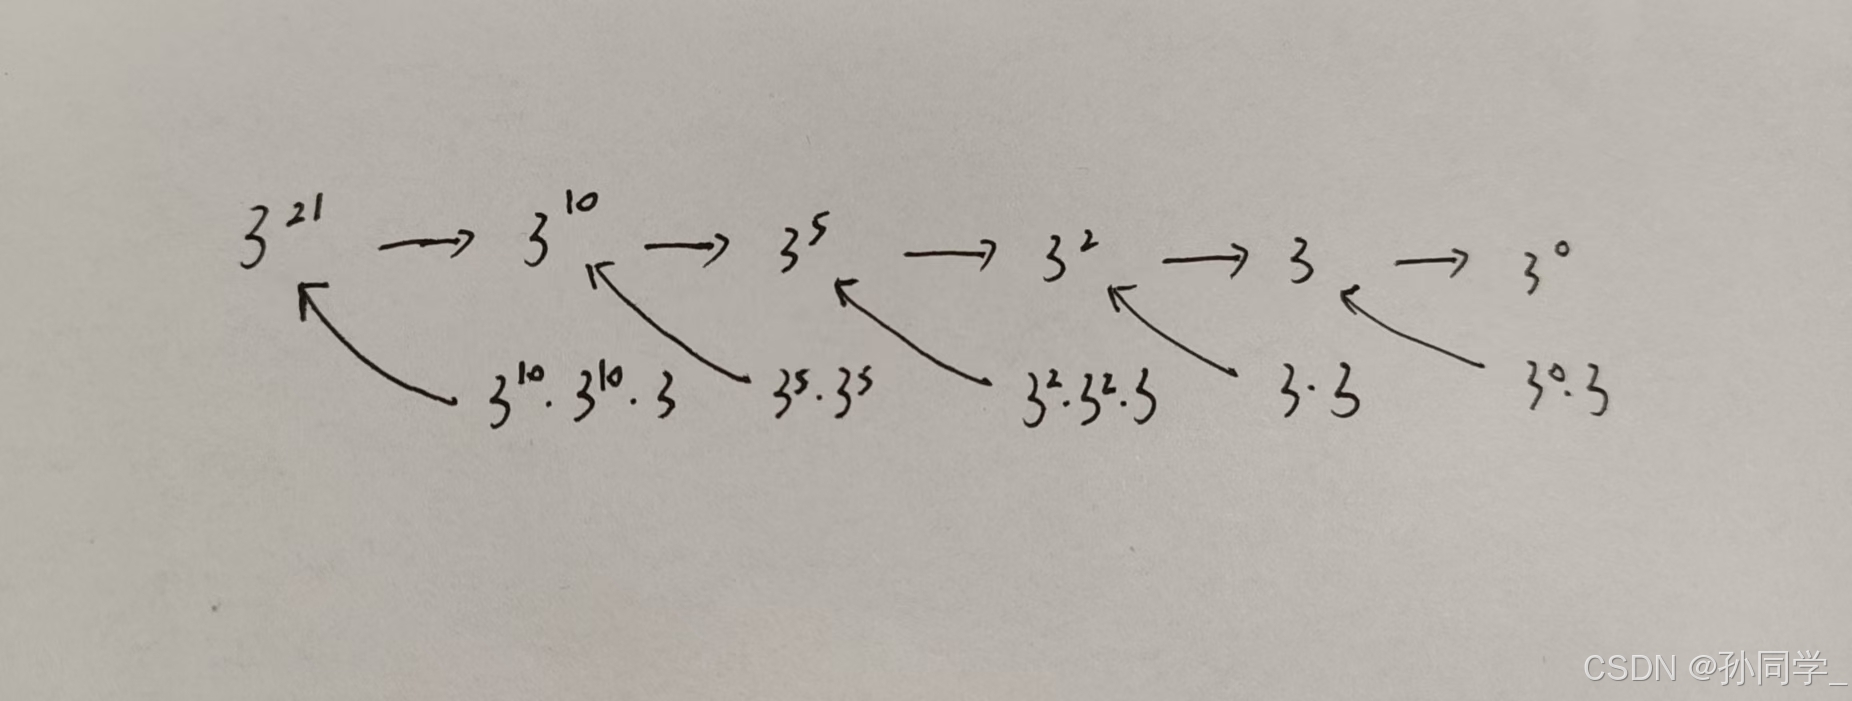 3²¹ → 3¹⁰ → 3⁵ → 3² → 3 → 3⁰
3¹⁰·3¹⁰·3 3⁵·3⁵ 3²·3²·3 3·3 3⁰·3
CSDN @孙同学_